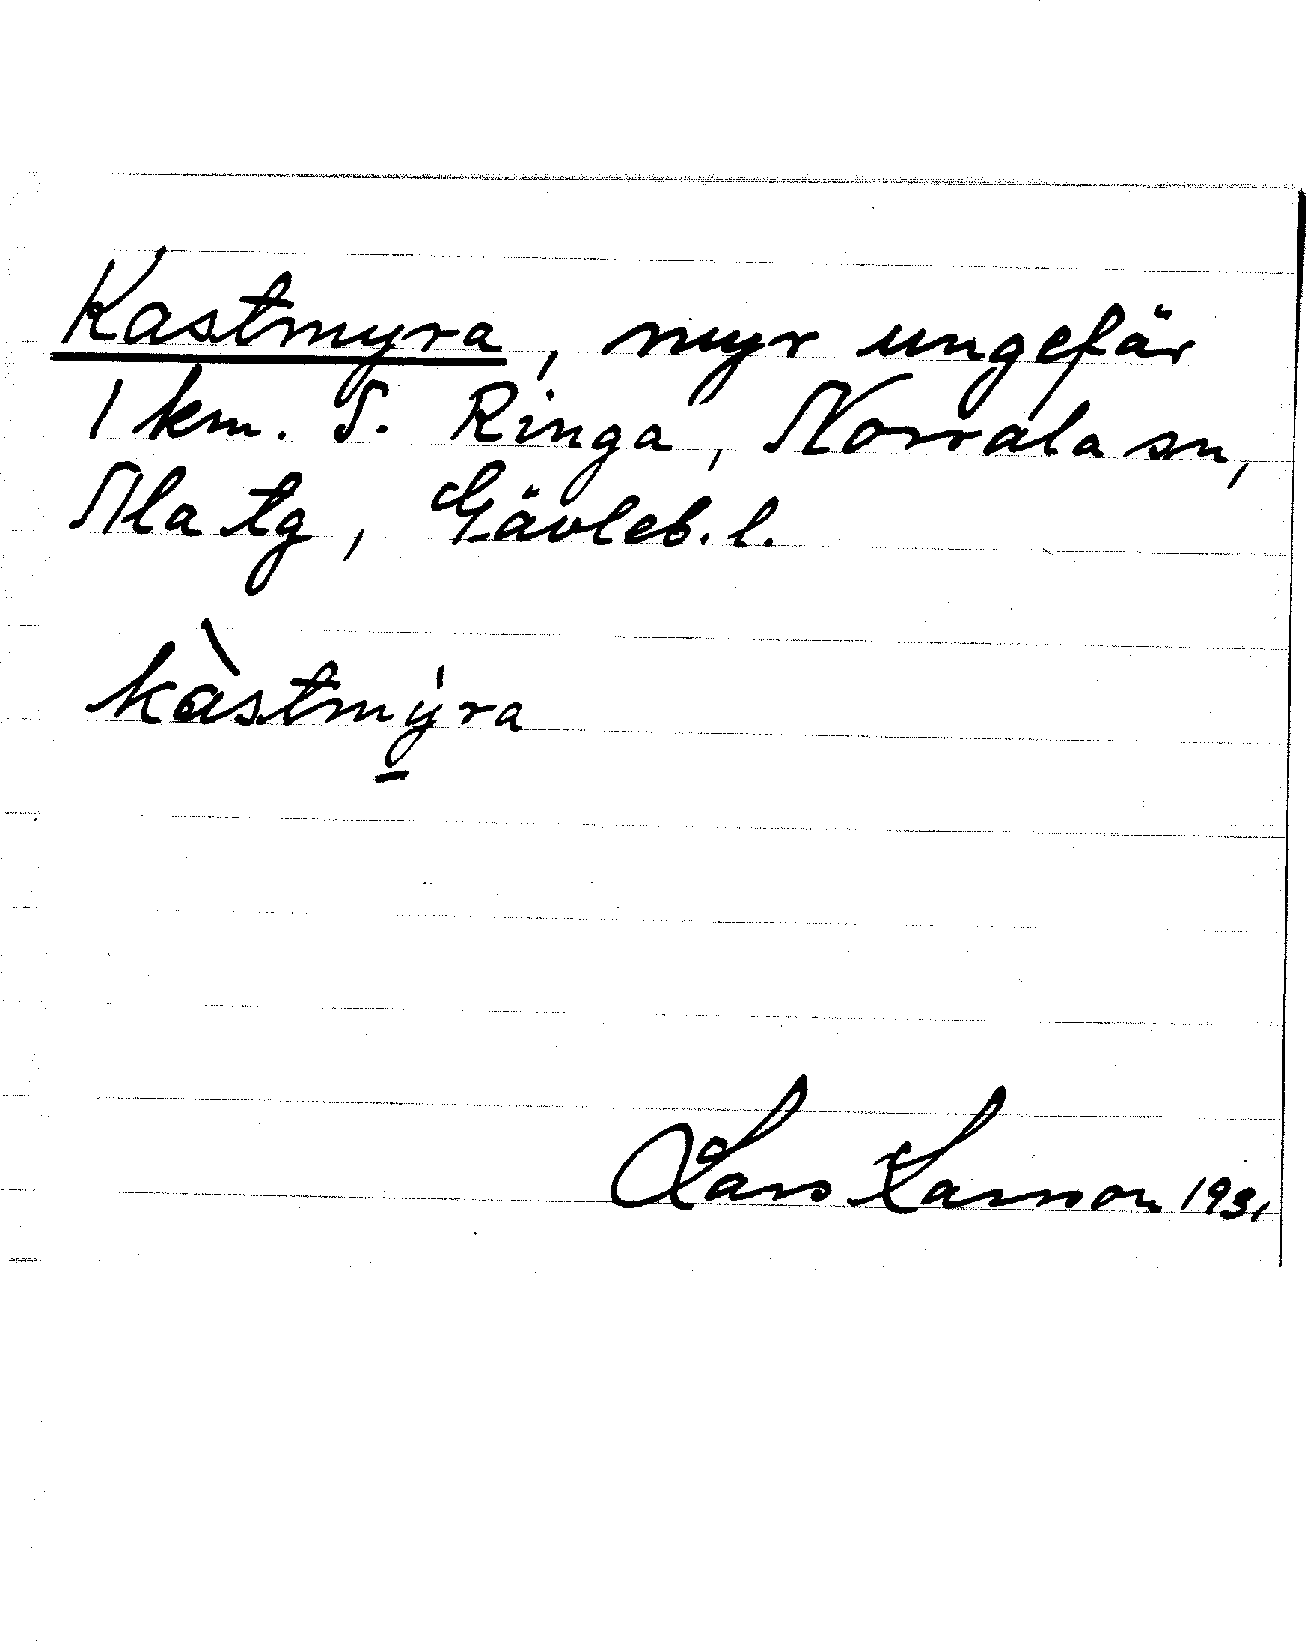 Kastmyra, myr ungefär
1 km. S. Ringa, Norrala sn,
Ala tg, Gävleb. l.
kàstmý̱ra
Lars Larsson 1931